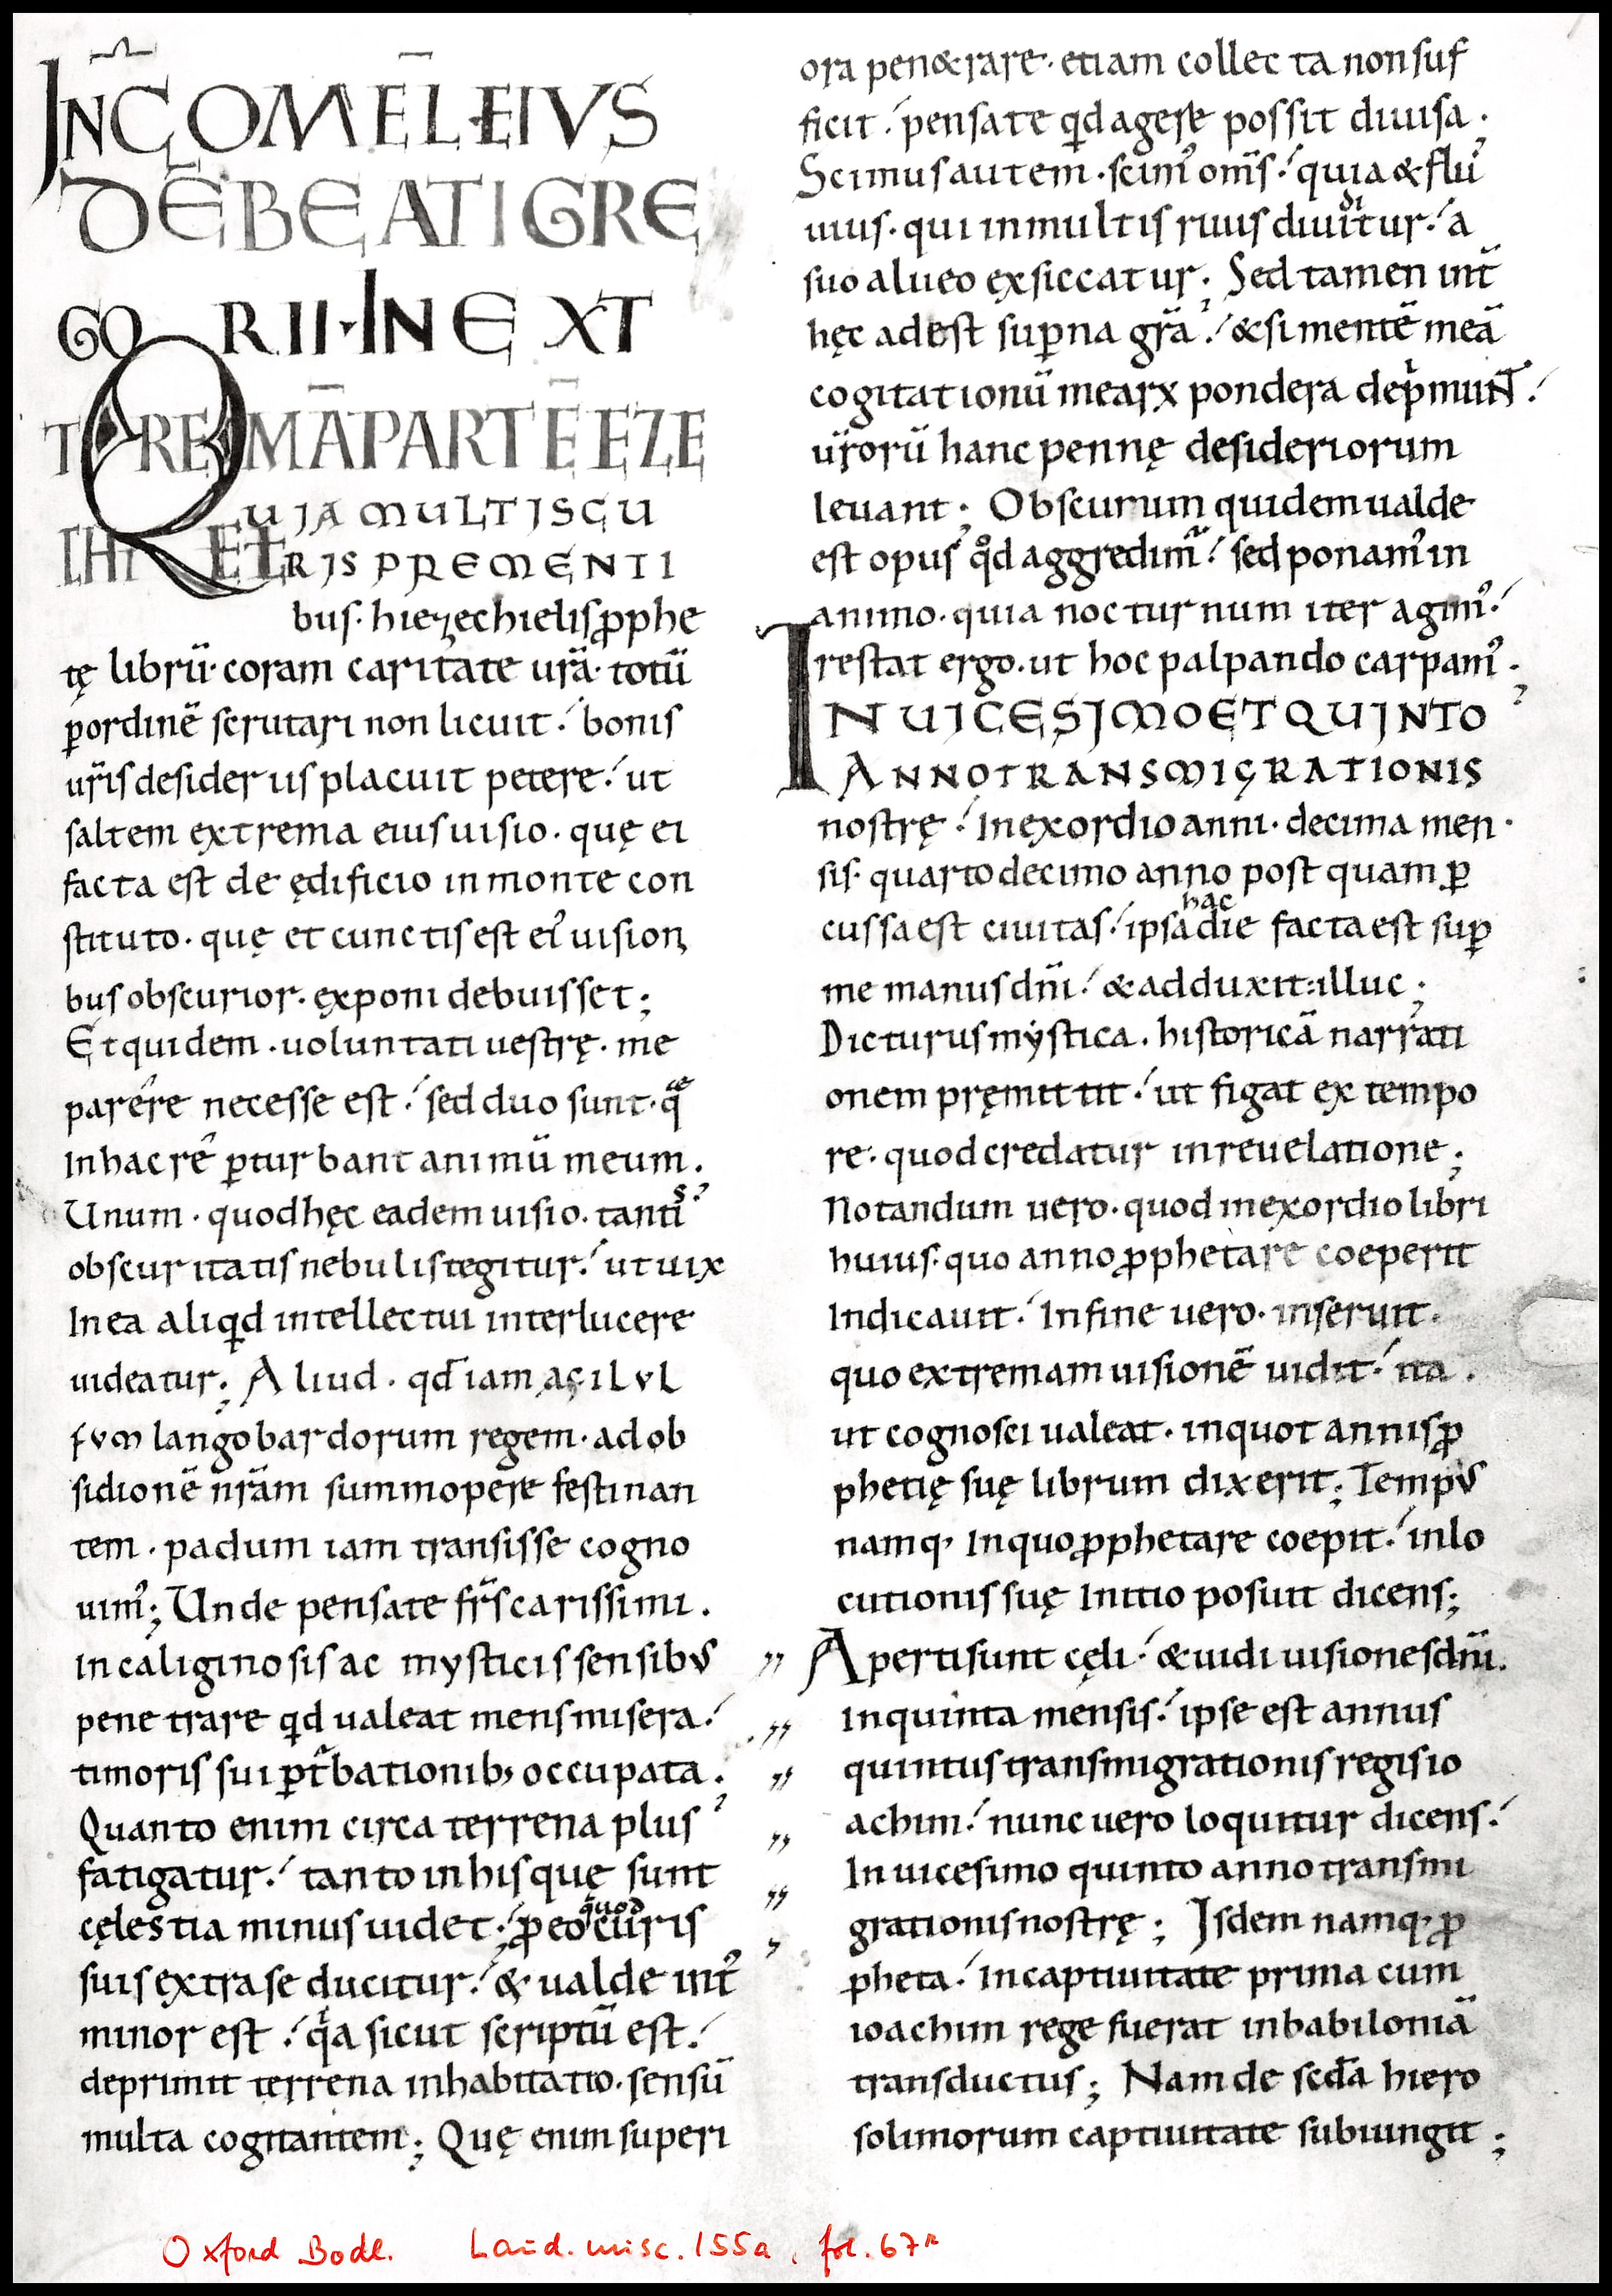 INC̄ OMĒL·EIVS
DE BEATI GRE
GORII·IN EXT
REMĀ PARTĒ EZE
CHI
EL
QUIA MULTIS CU
RIS PREMENTI
bus· hiezechielis ꝓphe
tę librū· coram caritate urā· totū
ꝑ ordinē scrutari non licuit· bonis
ur̄is desideriis placuit petere· ut
saltem extrema eius uisio· quę ei
facta est de ędificio in monte con
stituto· quę et cunctis est ei᾽ uisioni
bus obscurior· exponi debuisset;
Et quidem· uoluntati uestrę· me
parére necesse est· sed duo sunt· q̄ae
in hac ré ꝑturbant animū meum.
Unum· quod hęc eadem uisio· tantis
obscuritatis nebulis tegitur· ut uix
In ea aliqd intellectui interlucere
uideatur; Aliud· qd̄ iam agilul
fum langobardorum regem· ad ob
sidionē nr̄am summopere festinan
tem· padum iam transisse cogno
uim᾽; Unde pensate fr̄s carissimi.
in caliginosis ac mysticis sensibus
penetrare qd ualeat mens misera·
timoris sui ꝑt᷑bationib; occupata.
Quanto enim circa terrena plus
fatigatur· tanto in his quę sunt
cęlestia minus uidet; ꝓ eo quod curis
suis extra se ducitur· & ualde int᾽
minor est· qa sicut scriptū est·
deprimit terrena inhabitatio· sensū
multa cogitantem; Quę enim superi
ora pen&rare· etiam collecta non suf
ficit· pensate qd agere possit diuisa;
Scimus autem· scim᾽ om̄s· quia & flu
uius· qui in multis riuis diuiditur· a
suo alueo exsiccatur; Sed tamen int̄
hęc adest suꝑna gr̄a· & si mentē meā
cogitationū mearꝝ pondera depͥmunt·
ur̄orū hanc pennę desideriorum
leuant; Obscurum quidem ualde
est opus qͦd aggredim᷑· sed ponam᾽ in
animo· quia nocturnum iter agim᾽·
restat ergo· ut hoc palpando carpam᾽;
IN UICESIMO ET QUINTO
ANNO TRANSMIGRATIONIS
nostrę· In exordio anni· decima men·
sis· quarto decimo anno post quam ꝑ
cussa est ciuitas· ipsa hac die facta est suꝑ
me manus dn̄i· & adduxit illuc;
Dicturus mystica· historicā narrati
onem pręmittit· ut figat ex tempo
re· quod credatur in reuelatione;
Notandum uero· quod in exordio libri
huius· quo anno ꝓphetare coeperit
Indicauit· In fine uero· inseruit·
quo extremam uisionē uidit· ita.
ut cognosci ualeat· in quot annis ꝓ
phetię suę librum dixerit; Tempus
namq; In quo ꝓphetare coepit· in lo
cutionis suę Initio posuit dicens;
Aperti sunt cęli· & uidi uisiones dn̄i.
in quinta mensis· ipse est annus
quintus transmigrationis regis io
achim· nunc uero loquitur dicens·
In uicesimo quinto anno transmi
grationis nostrę; Isdem namq; ꝓ
pheta· in captiuitate prima cum
ioachim rege fuerat in babiloniā
transductus; Nam de sec̄da hiero
solimorum captiuitate subiungit;
Oxford Bodl. Laud. misc. 155a, fol. 67r